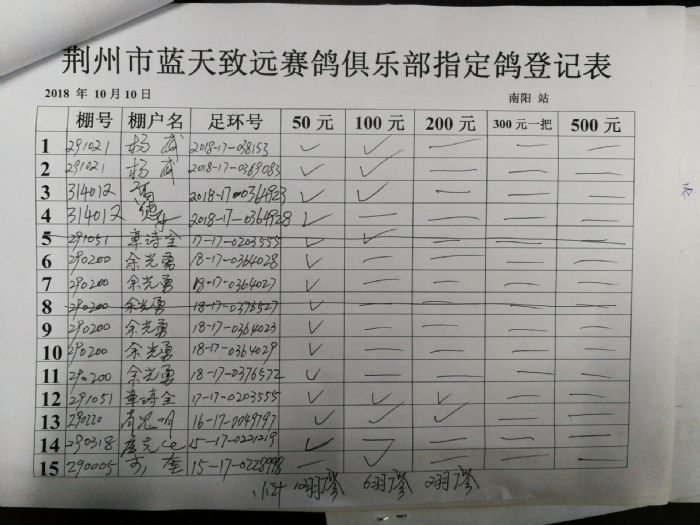 荆州市蓝天致远赛鸽俱乐部指定鸽登记表
2018 年 10 月 10 日 南阳 站
棚号 棚户名 足环号 50 元 100 元 200 元 300 元一把 500 元
1 291021 杨威 2018-17-038153 ✓ ✓ — — —
2 291021 杨威 2018-17-0369083 ✓ ✓ — — —
3 314012 2018-17-0364923 ✓ ✓ — — —
4 314012 2018-17-0364928 ✓ — — — —
5 291051 章诗全 17-17-0203555 ✓ ✓ — — —
6 290200 余光勇 18-17-0364028 ✓ — — — —
7 290200 余光勇 18-17-0364027 ✓ — — — —
8 290200 余光勇 18-17-0376527 ✓ — — — —
9 290200 余光勇 18-17-0364023 ✓ — — — —
10 290200 余光勇 18-17-0364029 ✓ — — — —
11 290200 余光勇 18-17-0376572 ✓ — — — —
12 291051 章诗全 17-17-0203555 ✓ ✓ ✓ — —
13 290220 肖忠明 16-17-7049797 ✓ ✓ ✓ — —
14 290318 15-17-0221219 ✓ — — — —
15 290005 15-17-0228998 — ✓ — — —
小计